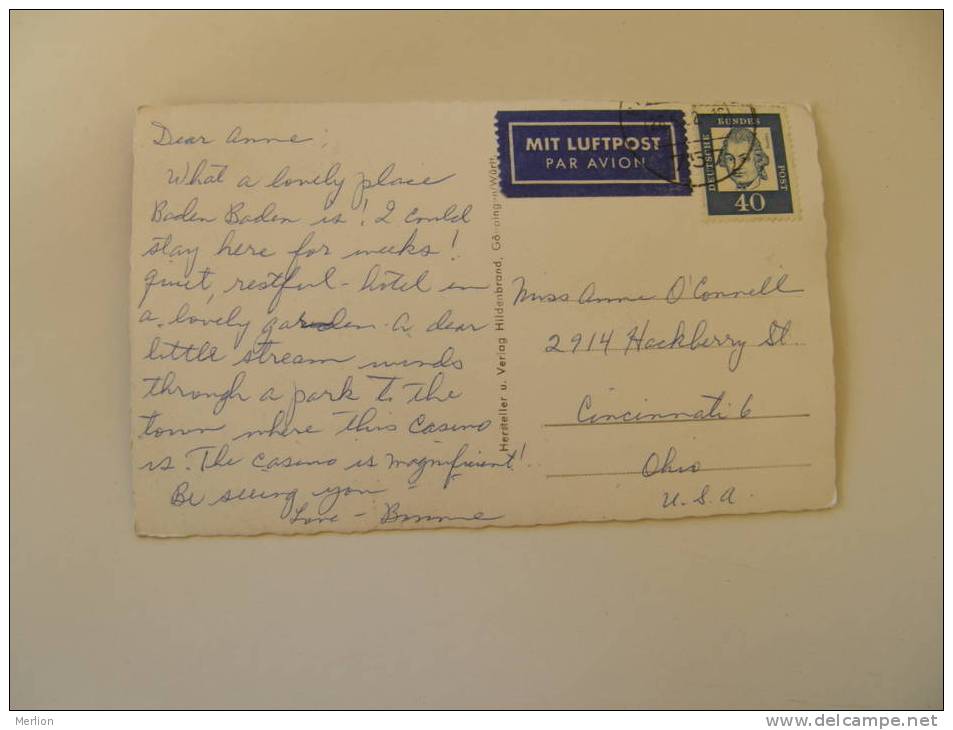 Dear Anne:
What a lovely place
Baden Baden is! I could
stay here for weeks!
quiet, restful - hotel in
a lovely garden. A dear
little stream winds
through a park to the
town where this Casino
is. The casino is magnificent!
Be seeing you
Love -
MIT LUFTPOST
PAR AVION
DEUTSCHE BUNDES POST
40
Hersteller u. Verlag Hildenbrand, Göppingen/Württ.
Miss Anne O'Connell
2914 Hackberry St.
Cincinnati 6
Ohio
U.S.A.
Merlion
www.delcampe.net